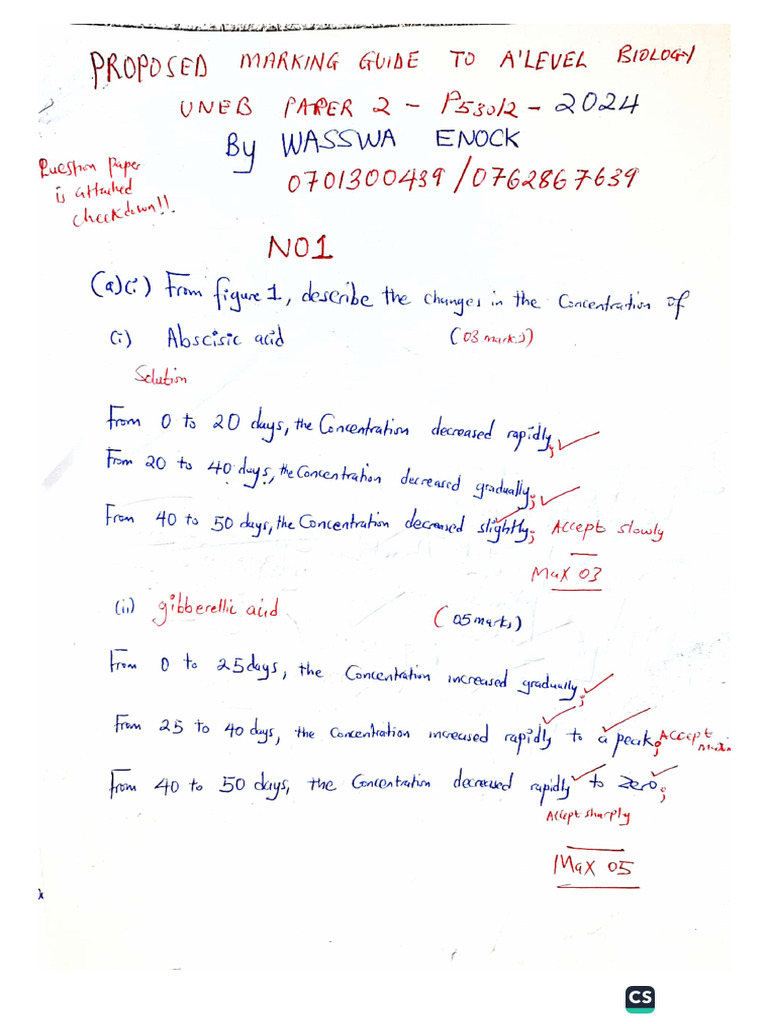 PROPOSED MARKING GUIDE TO A'LEVEL BIOLOGY
UNEB PAPER 2 - P530/2 - 2024
By WASSWA ENOCK
Question paper
is attached
checkdown!!
0701300439/0762867639
NO1
(a)(i) From figure 1, describe the changes in the concentration of
(i) Abscisic acid (03 marks)
Solution
From 0 to 20 days, the Concentration decreased rapidly;
From 20 to 40 days, the Concentration decreased gradually;
From 40 to 50 days, the Concentration decreased slightly; Accept slowly
Max 03
(ii) gibberellic acid (05 marks)
From 0 to 25days, the Concentration increased gradually;
From 25 to 40 days, the Concentration increased rapidly to a peak; Accept
From 40 to 50 days, the Concentration decreased rapidly to zero;
Accept sharply
Max 05
CS